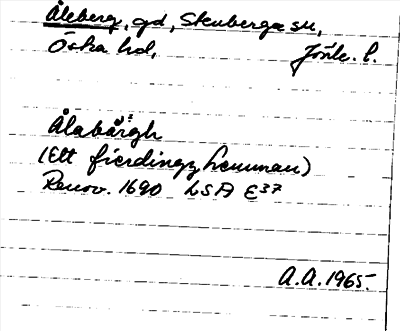 Åleberg, gd, Stenberga sn,
Östra hd, Jönk. l.
Ålabårgh
(Ett fierdingz hemman)
Renov. 1690 LSA E37
A.A. 1965.